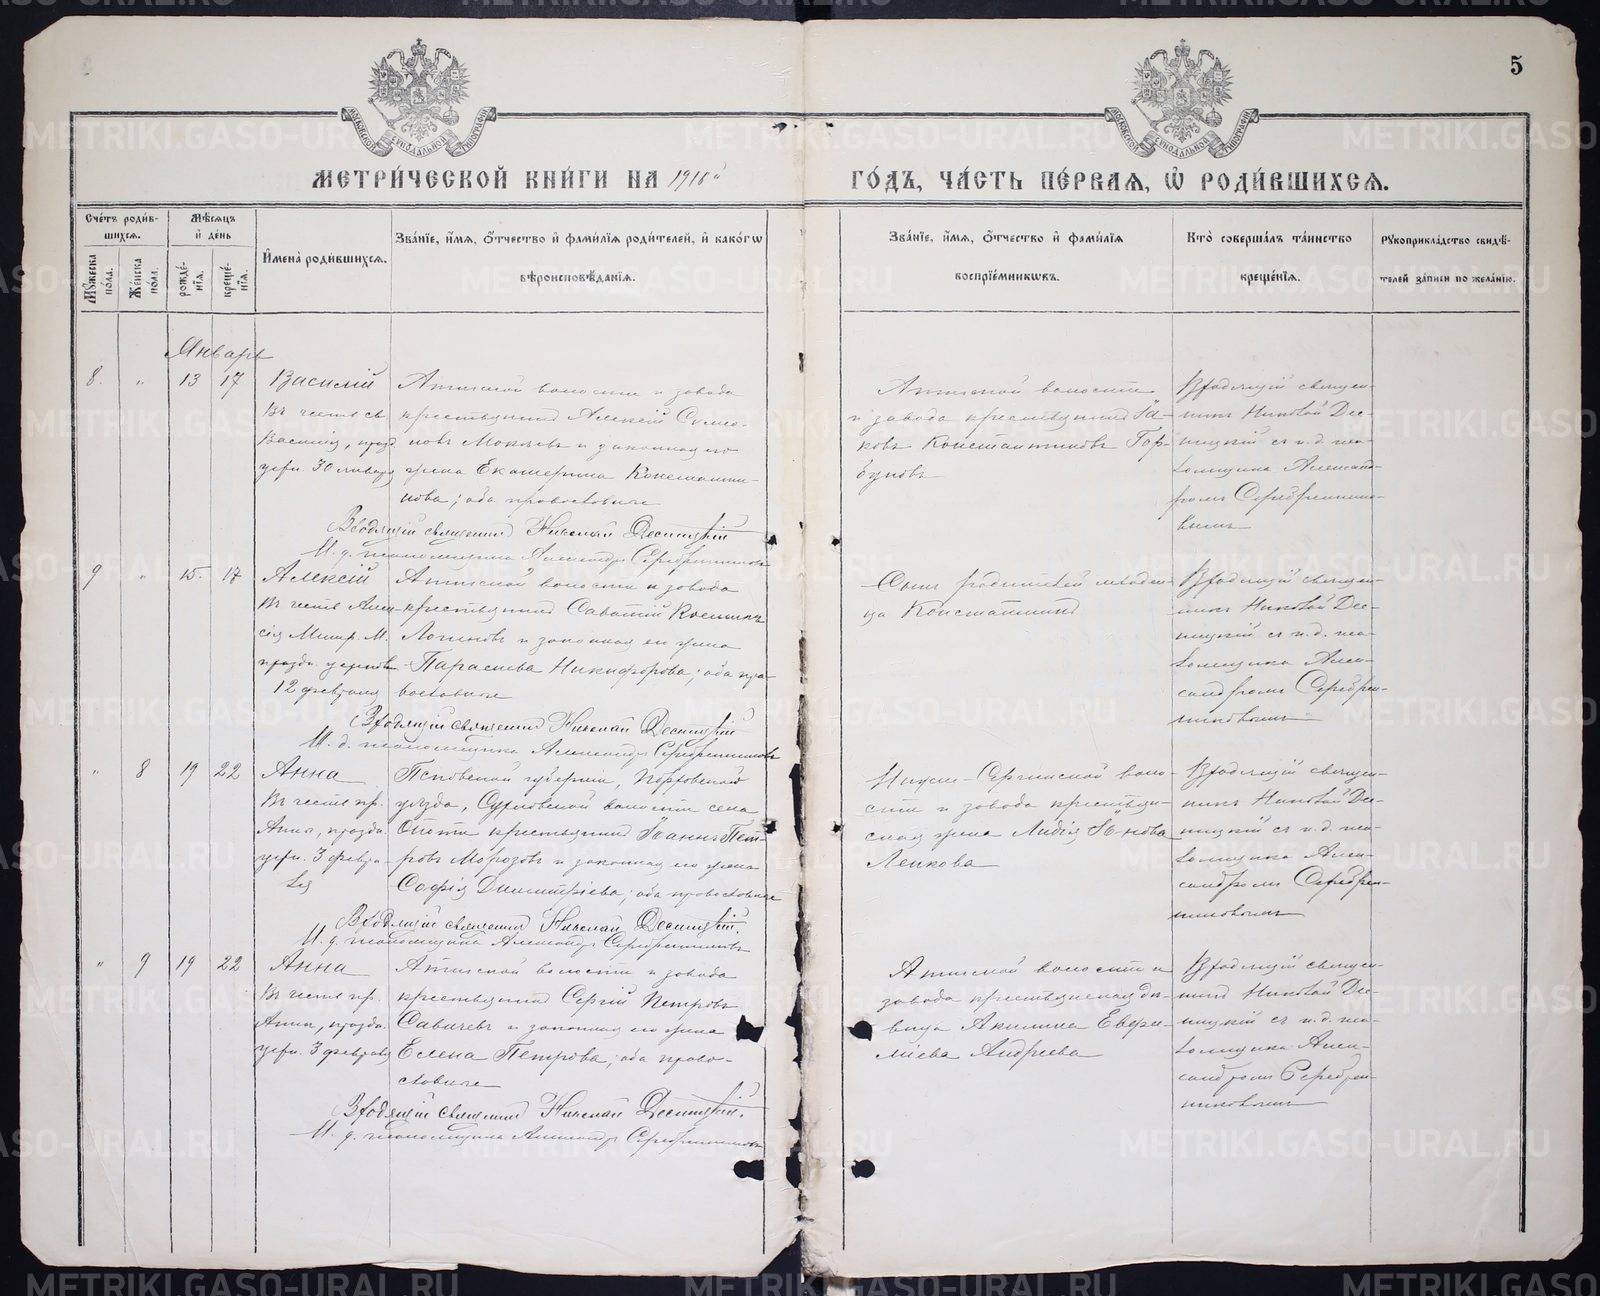 5
МОСКОВСКОЙ СѴНОДАЛЬНОЙ ТИПОГРАФІИ
МОСКОВСКОЙ СѴНОДАЛЬНОЙ ТИПОГРАФІИ
МЕТРИ́ЧЕСКОЙ КНИ́ГИ НА
ГО́ДЪ, ЧА́СТЬ ПЕ́РВАЯ, Ѡ҆ РОДИ́ВШИХСЯ.
Сче́тъ роди́в-
шихся.
Му́жеска
по́ла.
Же́нска
по́ла.
Мѣ́сяцъ
и҆ де́нь
рожде́-
нїя.
креще́-
нїя.
И҆мена̀ роди́вшихся.
Зва́нїе, и҆́мя, ѻ҆́тчество и҆ фами́лїя роди́телей, и҆ како́гѡ
вѣроисповѣ́данїя.
Зва́нїе, и҆́мя, ѻ҆́тчество и҆ фами́лїя
воспрїе́мникѡвъ.
Кто̀ соверша́лъ та́инство
креще́нїя.
Рукоприкла́дство свидѣ́-
телей за́писи по жела́нїю.
Январь
8. " 13 17
Василій
Въ честь св.
Василія, празд.
церк. 30 января
Атигской волости и завода
крестьянинъ Алексій Симео-
новъ и законная его
жена Екатерина Константи-
нова; оба православные
Входящій священникъ Николай Десницкій
И. д. псаломщика Александръ Серебренниковъ
Атигской волости
и завода крестьянинъ Іа-
ковъ Константиновъ Гор-
буновъ
Входящій священ-
никъ Николай Дес-
ницкій съ и. д. пса-
ломщика Александ-
ромъ Серебреннико-
вымъ
9 " 15. 17
Алексій
Въ честь Алек-
сія Митр. М.
празд. церковь
12 февраля
Атигской волости и завода
крестьянинъ Саватій
Логиновъ и законная его жена
Параскева Никифорова; оба пра-
вославные
Входящій священникъ Николай Десницкій
И. д. псаломщика Александръ Серебренниковъ
Сынъ родителей младен-
ца Константинъ
Входящій священ-
никъ Николай Дес-
ницкій съ и. д. пса-
ломщика Алек-
сандромъ Серебрен-
никовымъ
" 8 19 22
Анна
Въ честь пр.
Анны, празд.
церк. 3 февра-
ля
Псковской губерніи, Порховской
уезда, волости села
крестьянинъ Іоаннъ Пет-
ровъ Морозовъ и законная его жена
Софія Димитріева; оба православные
Входящій священникъ Николай Десницкій.
И. д. псаломщика Александръ Серебренниковъ
Нижне-Сергинской воло-
сти и завода крестьян-
ская жена Лидія
Входящій священ-
никъ Николай Дес-
ницкій съ и. д. пса-
ломщика Алек-
сандромъ Серебрен-
никовымъ
" 9 19 22
Анна
Въ честь пр.
Анны, празд.
церк. 3 февраля
Атигской волости и завода
крестьянинъ Сергій Петровъ
Савичевъ и законная его жена
Елена Петрова; оба право-
славные
Входящій священникъ Николай Десницкій.
И. д. псаломщика Александръ Серебренниковъ
Атигской волости и
завода крестьянская дѣ-
вица Акилина Евфи-
міева Андреева
Входящій священ-
никъ Николай Дес-
ницкій съ и. д. пса-
ломщика Алек-
сандромъ Серебрен-
никовымъ
METRIKI.GASO-URAL.RU